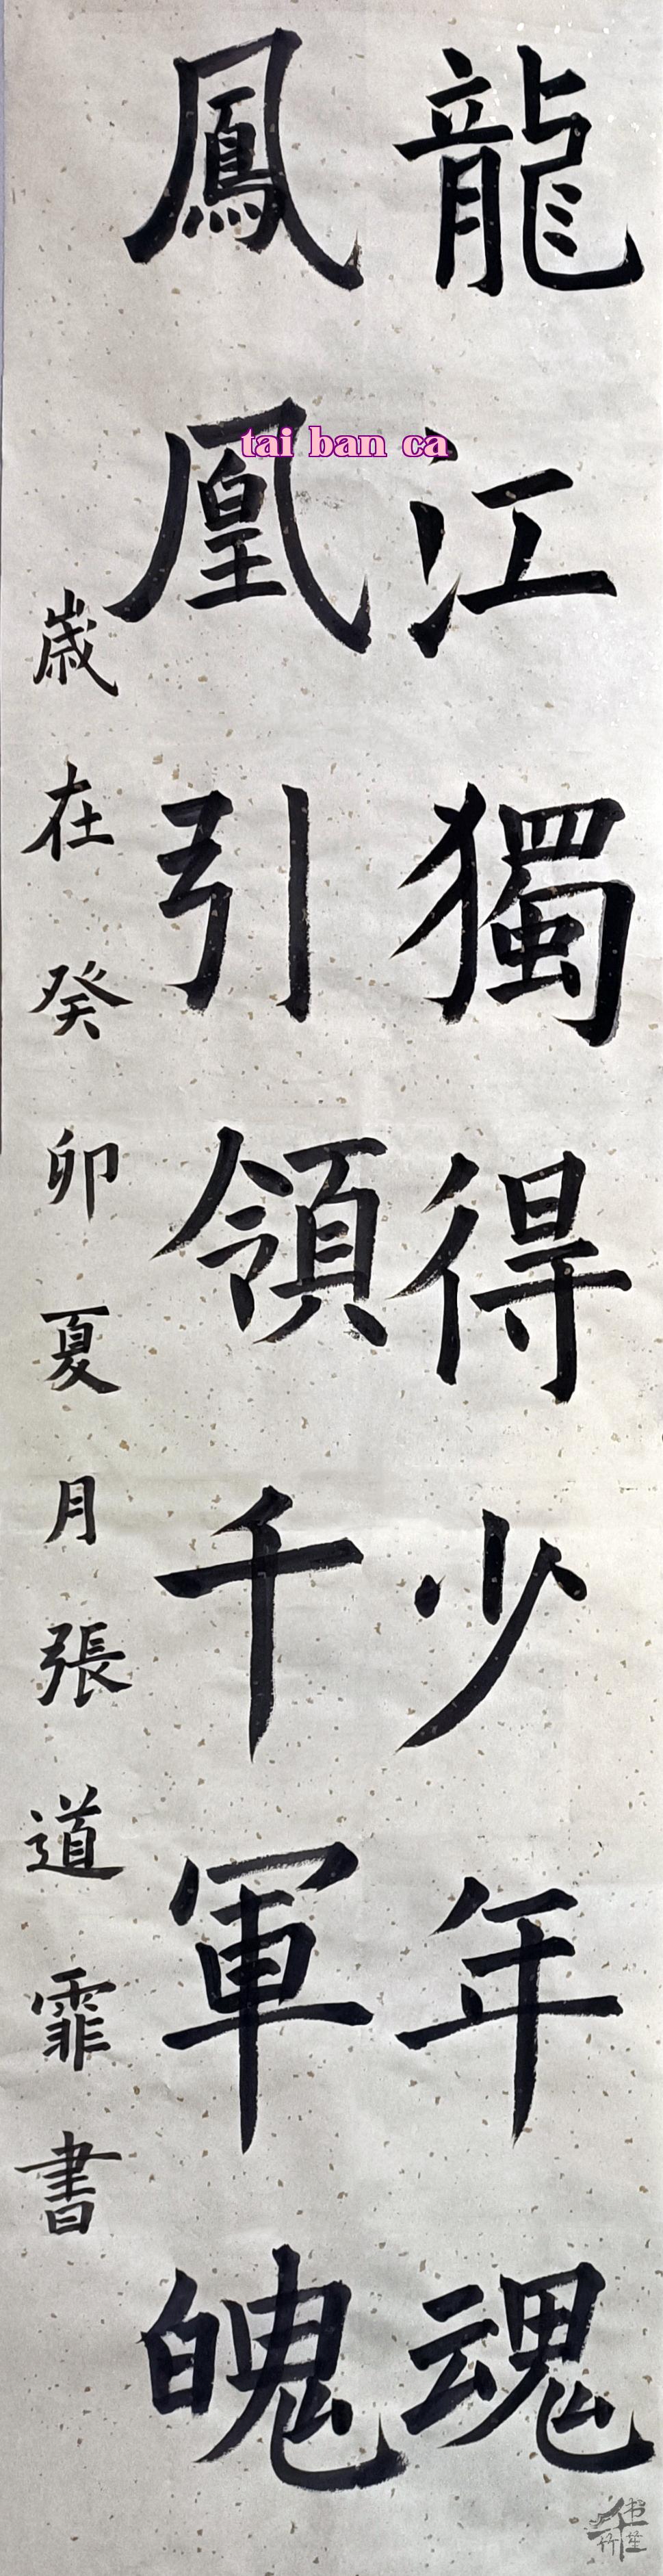 龍江獨得少年魂
鳳凰引領千軍魄
歲在癸卯夏月張道霏書
tai ban ca